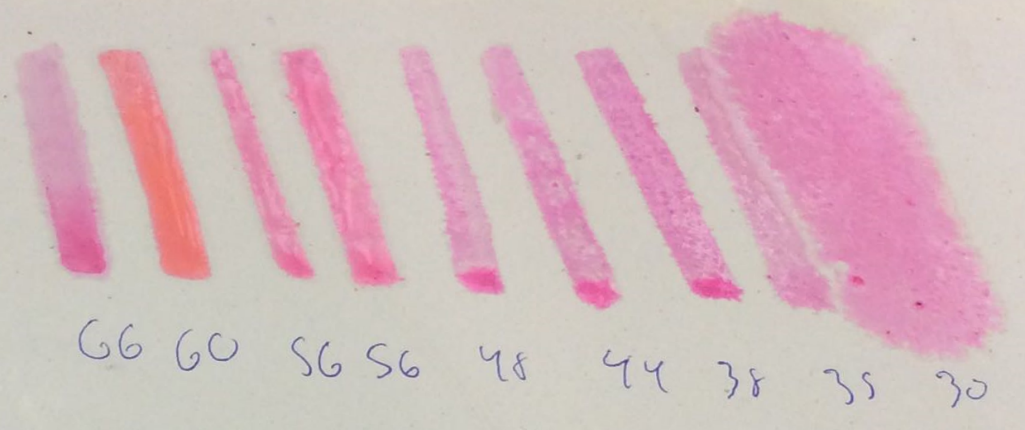 66 60 56 56 48 44 38 35 30